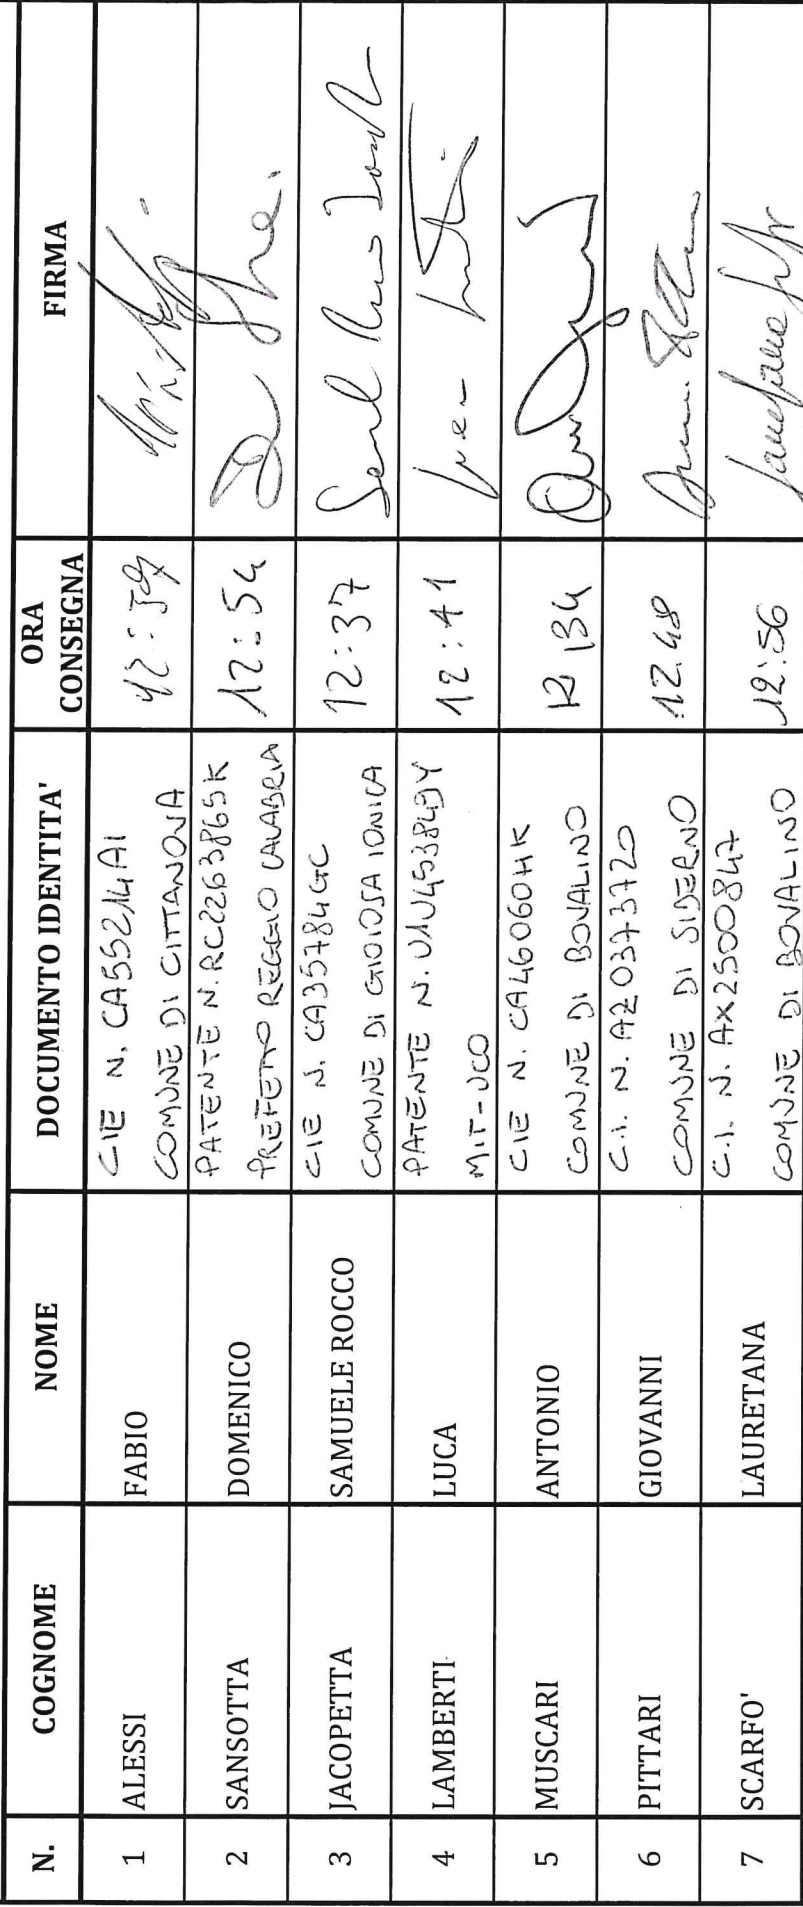 N. COGNOME NOME DOCUMENTO IDENTITA' ORA CONSEGNA FIRMA
1 ALESSI FABIO CIE N. CA55214AI 12:59
COMUNE DI CITTANOVA
2 SANSOTTA DOMENICO PATENTE N. RC2263865K 12:54
PREFETTO REGGIO CALABRIA
3 JACOPETTA SAMUELE ROCCO CIE N. CA35784GC 12:37
COMUNE DI GIOIOSA IONICA
4 LAMBERTI LUCA PATENTE N. U1U453849Y 12:41
MIT-UCO
5 MUSCARI ANTONIO CIE N. CA46060HK 12:34
COMUNE DI BOVALINO
6 PITTARI GIOVANNI C.I. N. AZ0373720 12.48
COMUNE DI SIDERNO
7 SCARFO' LAURETANA C.I. N. AX2500847 12:56
COMUNE DI BOVALINO